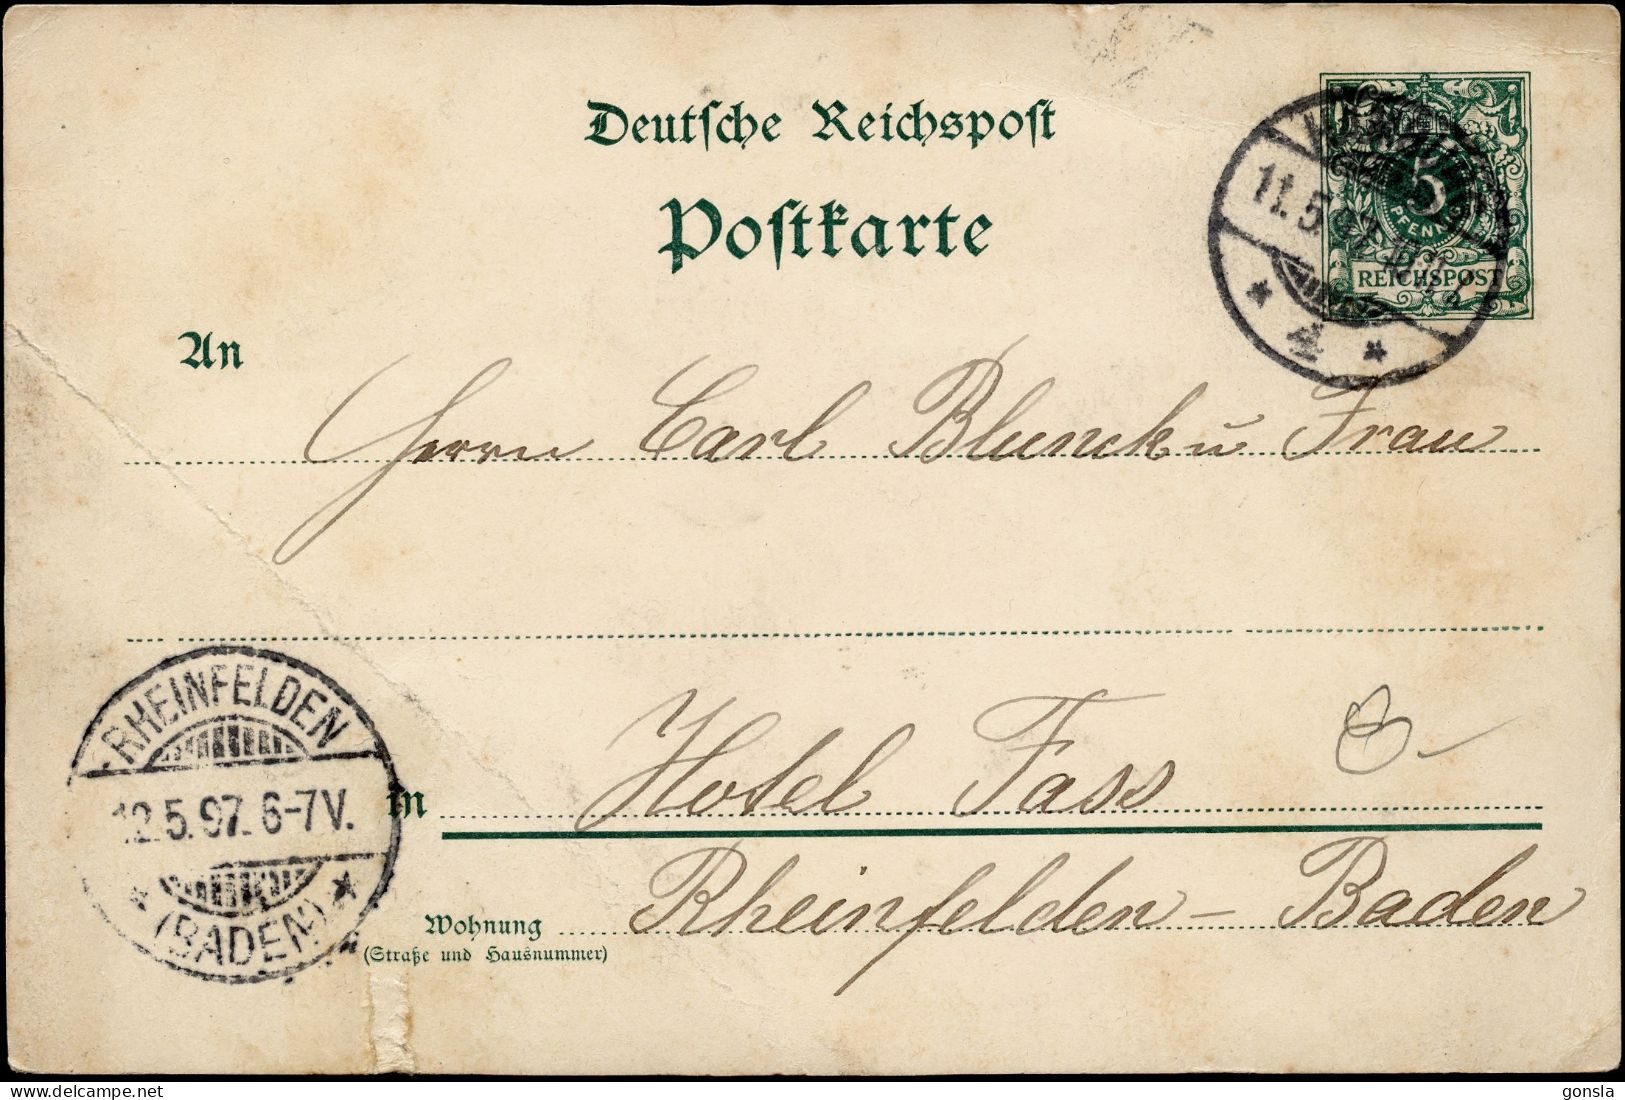 Deutsche Reichspost
Postkarte
5
PFENNIG
REICHSPOST
11.5.97.
4
An
Herrn Carl Blunck u Frau
RHEINFELDEN
12.5.97. 6-7V.
(BADEN)
in Hotel Fass
Wohnung Rheinfelden - Baden
(Straße und Hausnummer)
gonsla